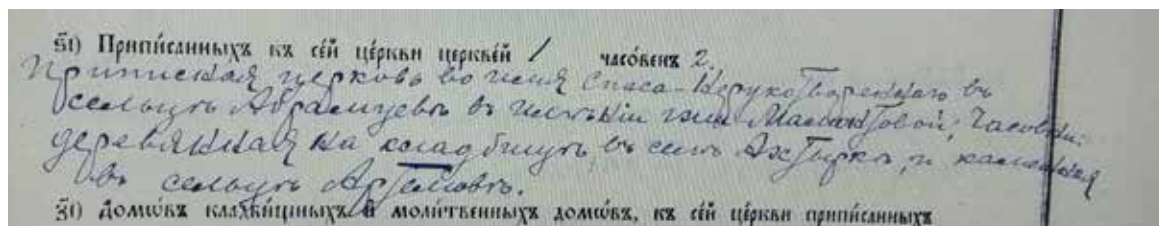 ѕ҃і) Приписанныхъ къ се́й це́ркви церкве́й 1 часо́венъ 2.
Приписная церковь во имя Спаса-Нерукотвореннаго въ
сельцѣ Абрамцевѣ въ имѣніи г-жи Мамонтовой; Часовни:
деревянная на кладбищѣ въ селѣ Ахтыркѣ, и каменная
въ сельцѣ Артемовѣ.
з҃і) Домѡ́въ кладби́щныхъ и҆ моли́твенныхъ домѡ́въ, къ се́й це́ркви припи́санныхъ